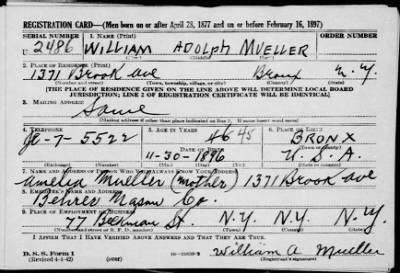 REGISTRATION CARD—(Men born on or after April 28, 1877 and on or before February 16, 1897)
SERIAL NUMBER 1. NAME (Print) ORDER NUMBER
U 2486 WILLIAM ADOLPH MUELLER
(First) (Middle) (Last)
2. PLACE OF RESIDENCE (Print)
1371 Brook ave Bronx N.Y.
(Number and street) (Town, township, village, or city) (County) (State)
[THE PLACE OF RESIDENCE GIVEN ON THE LINE ABOVE WILL DETERMINE LOCAL BOARD
JURISDICTION; LINE 2 OF REGISTRATION CERTIFICATE WILL BE IDENTICAL]
3. MAILING ADDRESS
Same
(Mailing address if other than place indicated on line 2. If same insert word same)
4. TELEPHONE 5. AGE IN YEARS 6. PLACE OF BIRTH
Je-7-5522 46 45 BRONX
DATE OF BIRTH
11-30-1896 U.S.A.
7. NAME AND ADDRESS OF PERSON WHO WILL ALWAYS KNOW YOUR ADDRESS
Amelia Mueller (mother) 1371 Brook ave
8. EMPLOYER'S NAME AND ADDRESS
Co.
9. PLACE OF EMPLOYMENT OR BUSINESS
77 Beekman St N.Y. N.Y. N.Y.
(Number and street or R. F. D. number) (Town) (County) (State)
I AFFIRM THAT I HAVE VERIFIED ABOVE ANSWERS AND THAT THEY ARE TRUE.
D. S. S. Form 1
(Revised 4-1-42) (over)
William A Mueller
(Registrant's signature)